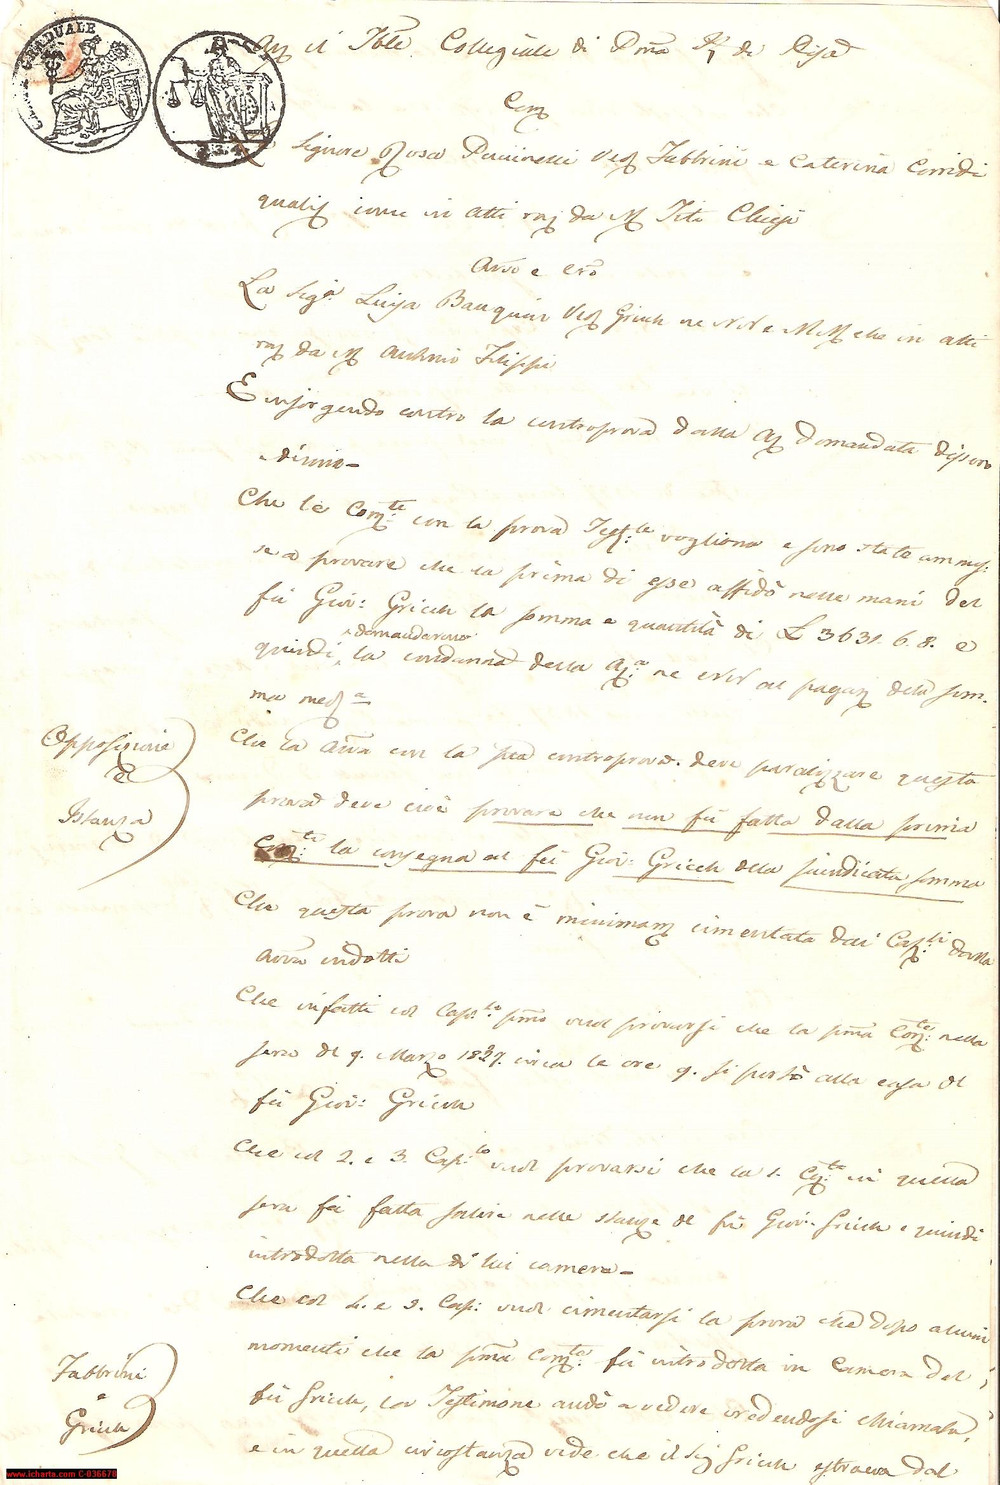 CARTA GRADUALE
Av il Tble Collegiale di Pma di Pisa
Com
Le Signore Rosa Puccinelli Ved Fabbrini e Caterina Corridi
qualif come in atti rap da M Tito Chiesi
Avso e Cro
La Sigra Luisa Bauquir Ved Grich ne NN e MM che in atti
rap da M Antonio Filippi
E insorgendo contro la controprova dalla domandata dissero
e dicono -
Che le Comti con la prova Testle vogliono e sono state ammes:
se a provare che la prima di esse affidò nelle mani del
fù Giov: Grich la somma e quantità di L 3631. 6. 8. e
quindi domandarono la condanna della ne NN al pagam della som-
ma med:a
Opposizione
e
Istanza
Che la Avvra con la sua controprova deve paralizzare questa
prova deve cioè provare che non fù fatta dalla prima
Comti la consegna al fù Giov: Grich della suindicata somma
Che questa prova non è minimam cimentata dai Capli dalla
Avvra indotti
Che infatti col Caplo pmo vuol provarsi che la pma Comte nella
sera del 9. Marzo 1827. circa le ore 9. si portò alla casa del
fù Giov: Grich
Che col 2. e 3. Caplo vuol provarsi che la 1. Comte in quella
sera fù fatta salire nelle stanze del fù Giov: Grich e quindi
introdotta nella di lui camera -
Che col 4. e 5. Cap: vuol cimentarsi la prova che dopo alcuni
momenti che la pma Comte fù introdotta in Camera del
fù Grich, la Testimone andò a vedere credendosi chiamata,
e in quella circostanza vide che il Sig Grich estraeva dal
Fabbrini
e
Grich
www.icharta.com C-036678